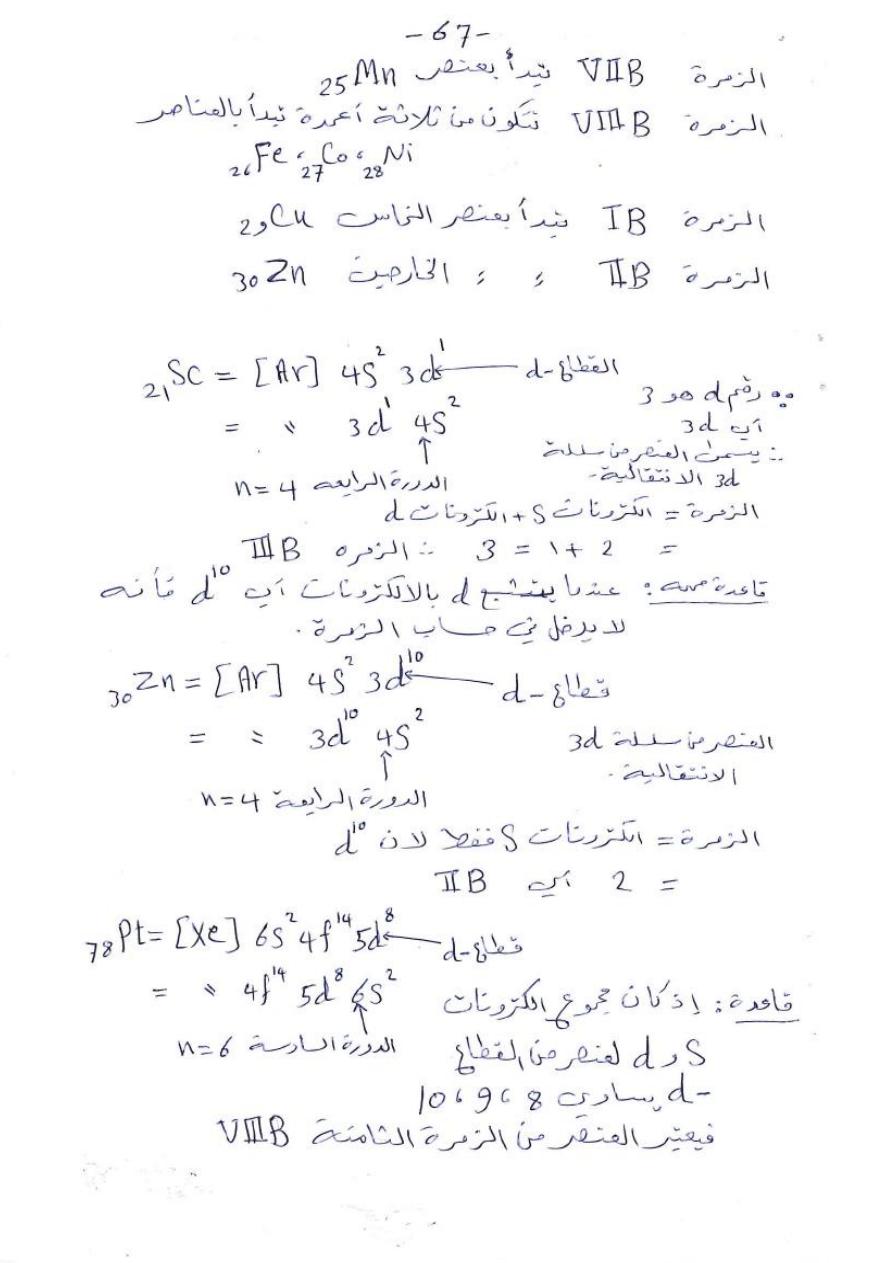 -67-
الزمرة VIIB تبدأ بعنصر 25Mn
الزمرة VIIIB تتكون من ثلاثة أعمدة تبدأ بالعناصر
26Fe ، 27Co ، 28Ni
الزمرة IB تبدأ بعنصر النحاس 29Cu
الزمرة IIB ، ، الخارصين 30Zn
21Sc = [Ar] 4S² 3d¹ ← القطاع-d
∵ رقم d هو 3
= " 3d¹ 4S²
أي 3d
∴ يسمى العنصر من سلسلة
3d الانتقالية.
↑ الدورة الرابعة n=4
الزمرة = الكترونات S + الكترونات d
= 2 + 1 = 3 ∴ الزمره IIIB
قاعدة مهمه: عندما يتشبع d بالالكترونات أي d¹⁰ فأنه
لا يدخل في حساب الزمرة.
30Zn = [Ar] 4S² 3d¹⁰ ← قطاع-d
= " 3d¹⁰ 4S²
العنصر من سلسلة 3d
الانتقالية.
↑ الدورة الرابعة n=4
الزمرة = الكترونات S فقط لان d¹⁰
= 2 أي IIB
78Pt = [Xe] 6S² 4f¹⁴ 5d⁸ ← قطاع-d
= " 4f¹⁴ 5d⁸ 6S²
↑ الدورة السادسة n=6
قاعدة: إذ كان مجموع الكترونات
S و d لعنصر من القطاع
-d يساوي 8 ، 9 ، 10
فيعتبر العنصر من الزمرة الثامنة VIIIB